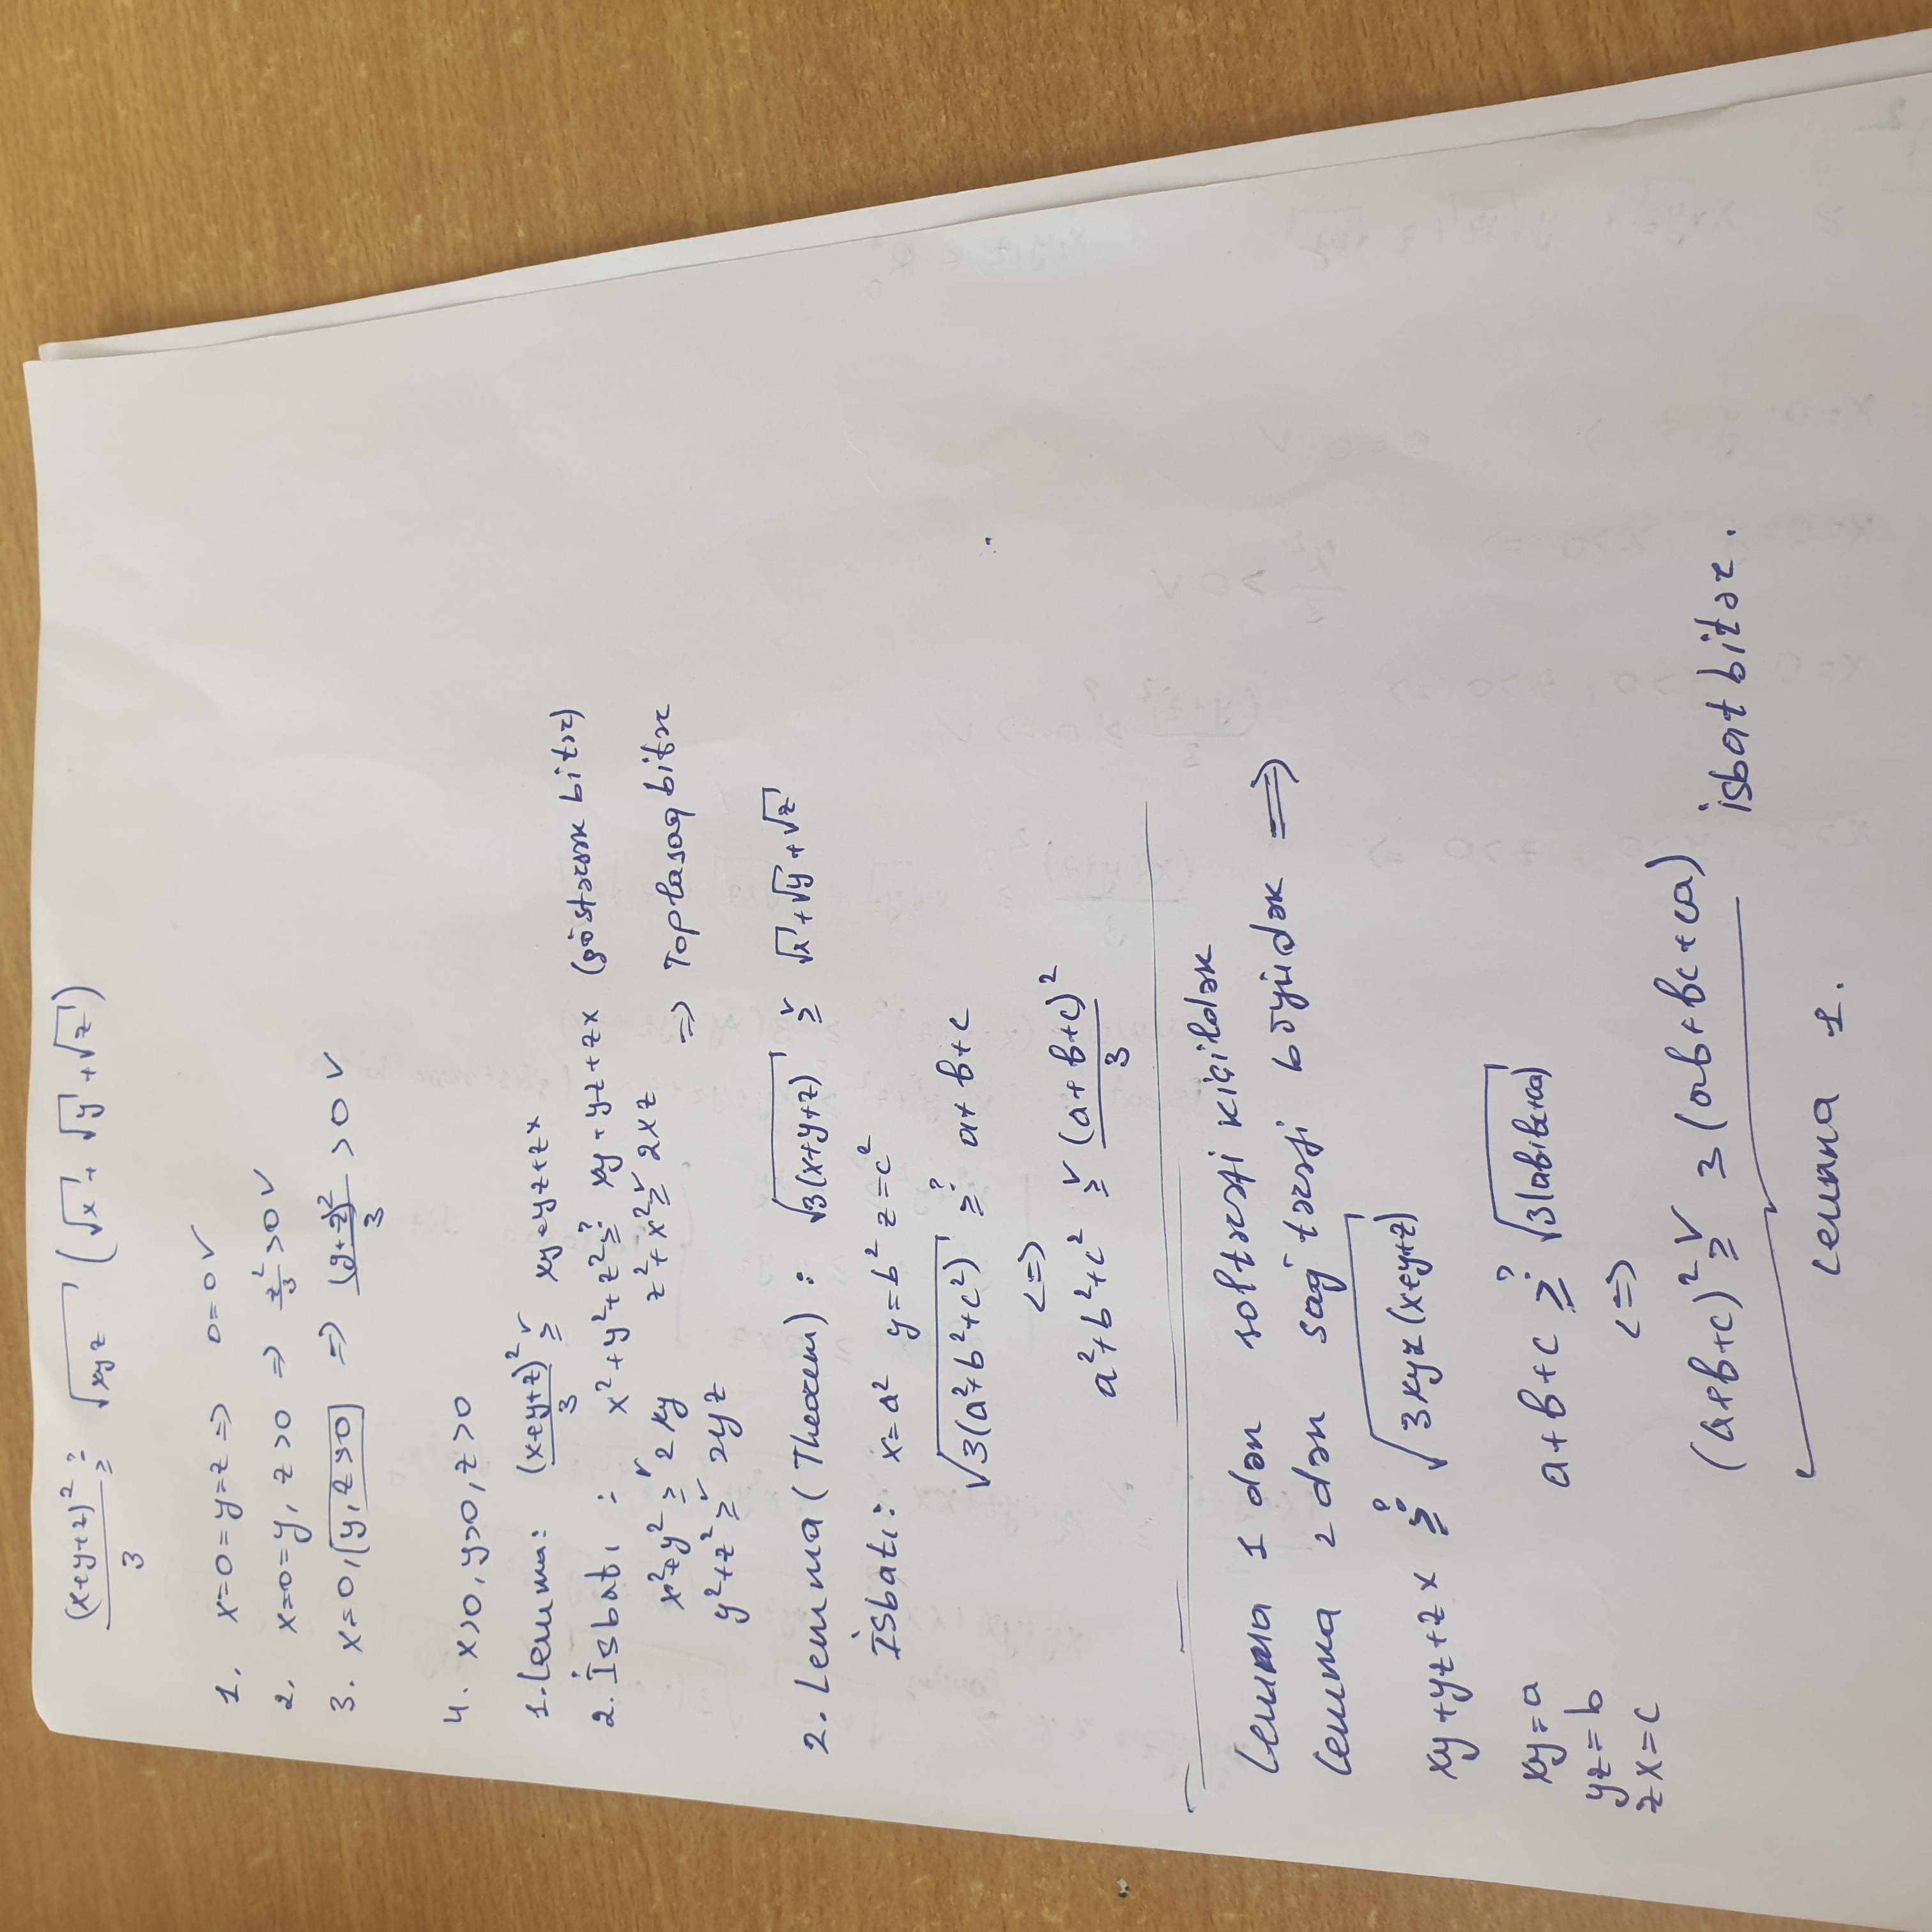 (x+y+z)²/3 ≥? √xyz (√x + √y + √z)
1. x=0=y=z => 0=0 ✓
2. x=0=y, z>0 => z²/3 >0 ✓
3. x=0, y, z>0 => (y+z)²/3 >0 ✓
4. x>0, y>0, z>0
1. Lemma: (x+y+z)²/3 ≥✓ xy+yz+zx
2. İsbatı: x²+y²+z² ≥? xy+yz+zx (göstərsək bitər)
x²+y² ≥✓ 2xy z²+x² ≥✓ 2xz
=> Toplasaq bitər
y²+z² ≥✓ 2yz
2. Lemma (Theorem): √3(x+y+z) ≥✓ √x+√y+√z
İsbatı: x=a² y=b² z=c²
√3(a²+b²+c²) ≥? a+b+c
<=>
a²+b²+c² ≥✓ (a+b+c)²/3
Lemma 1 dən soltərəfi kiçildək
Lemma 2 dən sağ tərəfi böyüdək =>
xy+yz+zx ≥? √3xyz(x+y+z)
xy=a
yz=b
zx=c
a+b+c ≥? √3(ab+bc+ca)
<=>
(a+b+c)² ≥✓ 3(ab+bc+ca) isbat bitər.
Lemma 1.